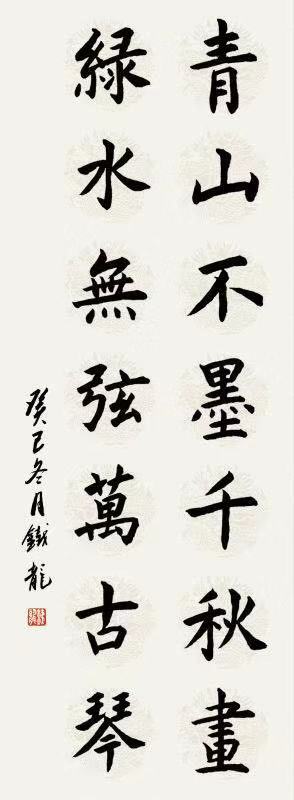 青山不墨千秋畫
緑水無弦萬古琴
癸已冬月鐵龍